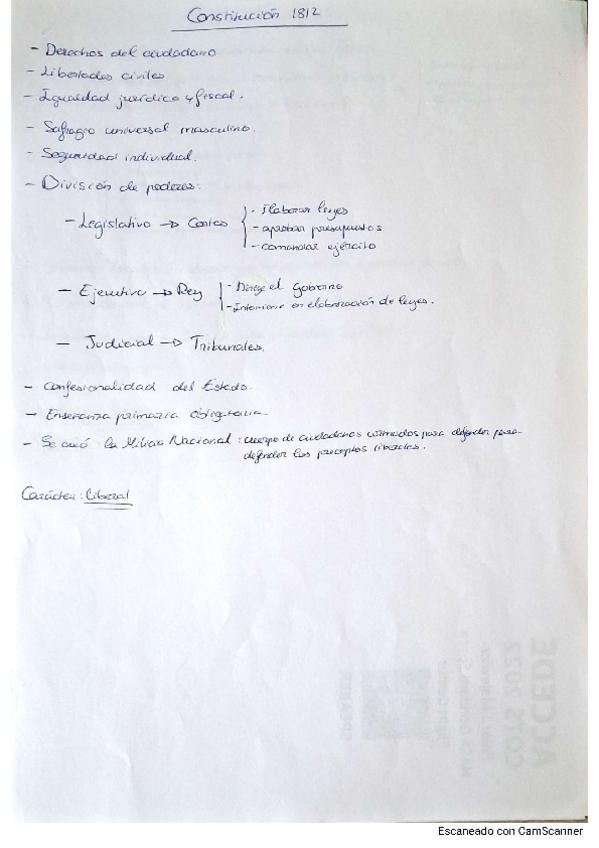 Constitución 1812
- Derechos del ciudadano
- Libertades civiles
- Igualdad jurídica y fiscal.
- Sufragio universal masculino.
- Seguridad individual.
- División de poderes:
- Legislativo → Cortes
- Elaborar leyes
- aprobar presupuestos
- comandar ejército
- Ejecutivo → Rey
- Dirige el Gobierno
- Interviene en elaboración de leyes.
- Judicial → Tribunales.
- Confesionalidad del Estado.
- Enseñanza primaria obligatoria.
- Se creó la Milicia Nacional: cuerpo de ciudadanos armados para defender para
defender los preceptos liberales.
Carácter: Liberal
ACCEDE
COTS 2022
Escaneado con CamScanner